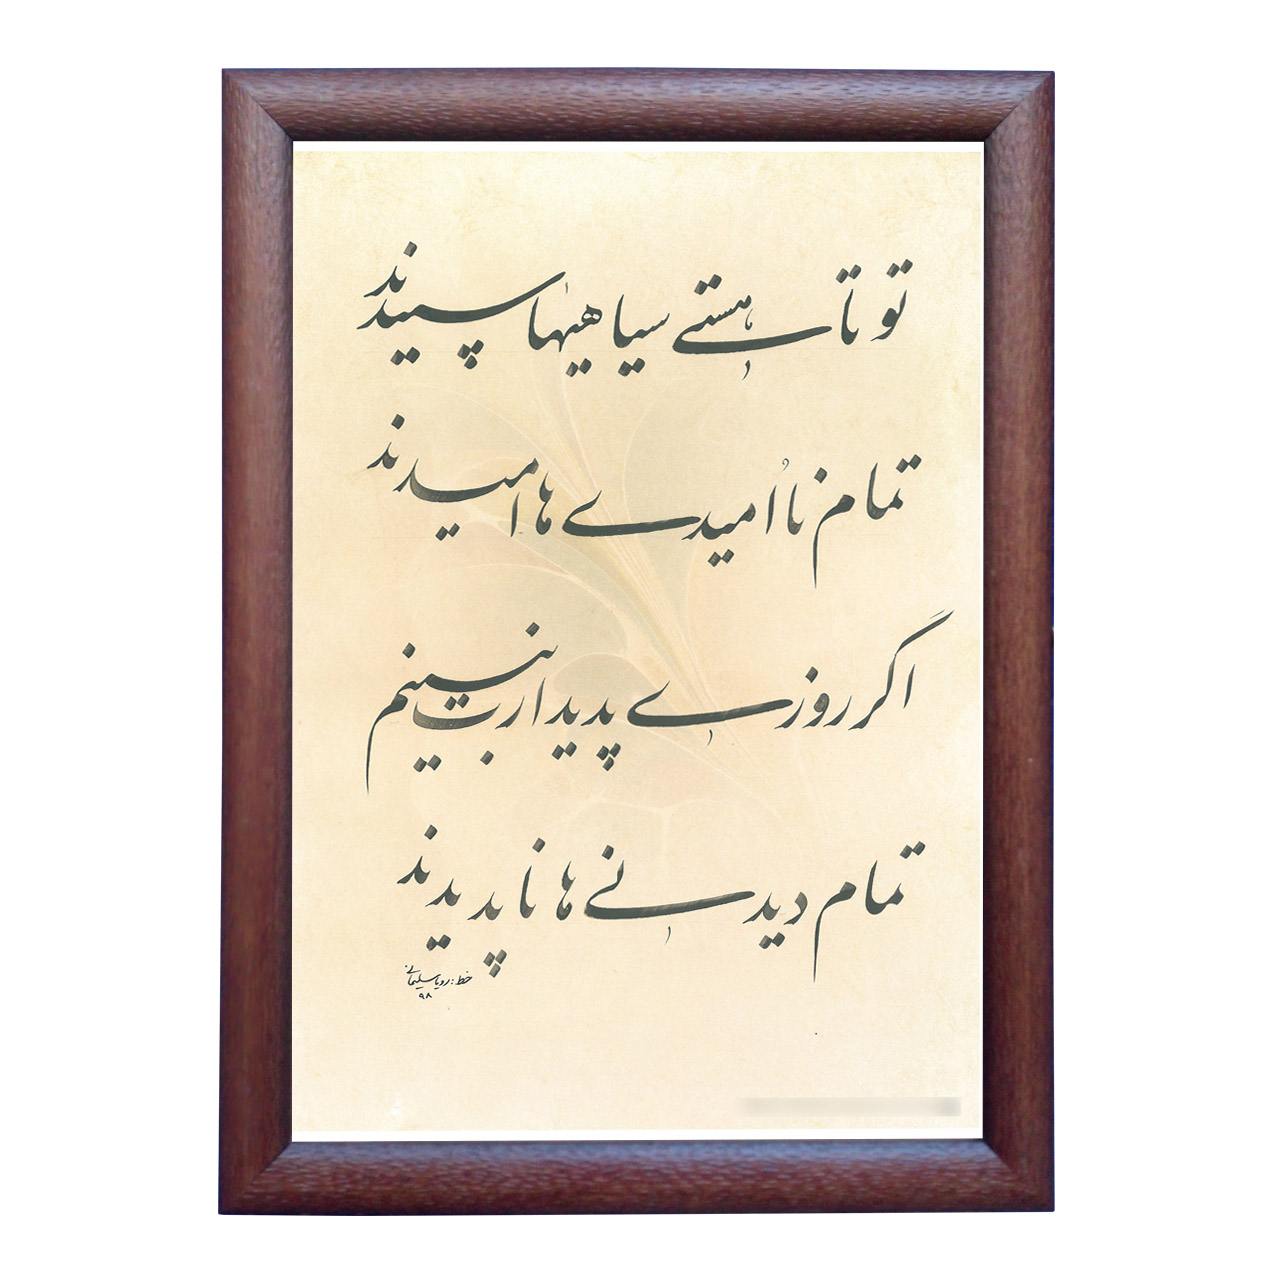 تو تا هستی سیاهیها سپیدند
تمام نا اُمیدی ها امیدند
اگر روزی پدیدارت نبینم
تمام دیدنی ها ناپدیدند
خط: رویا سلیمانی
۹۸